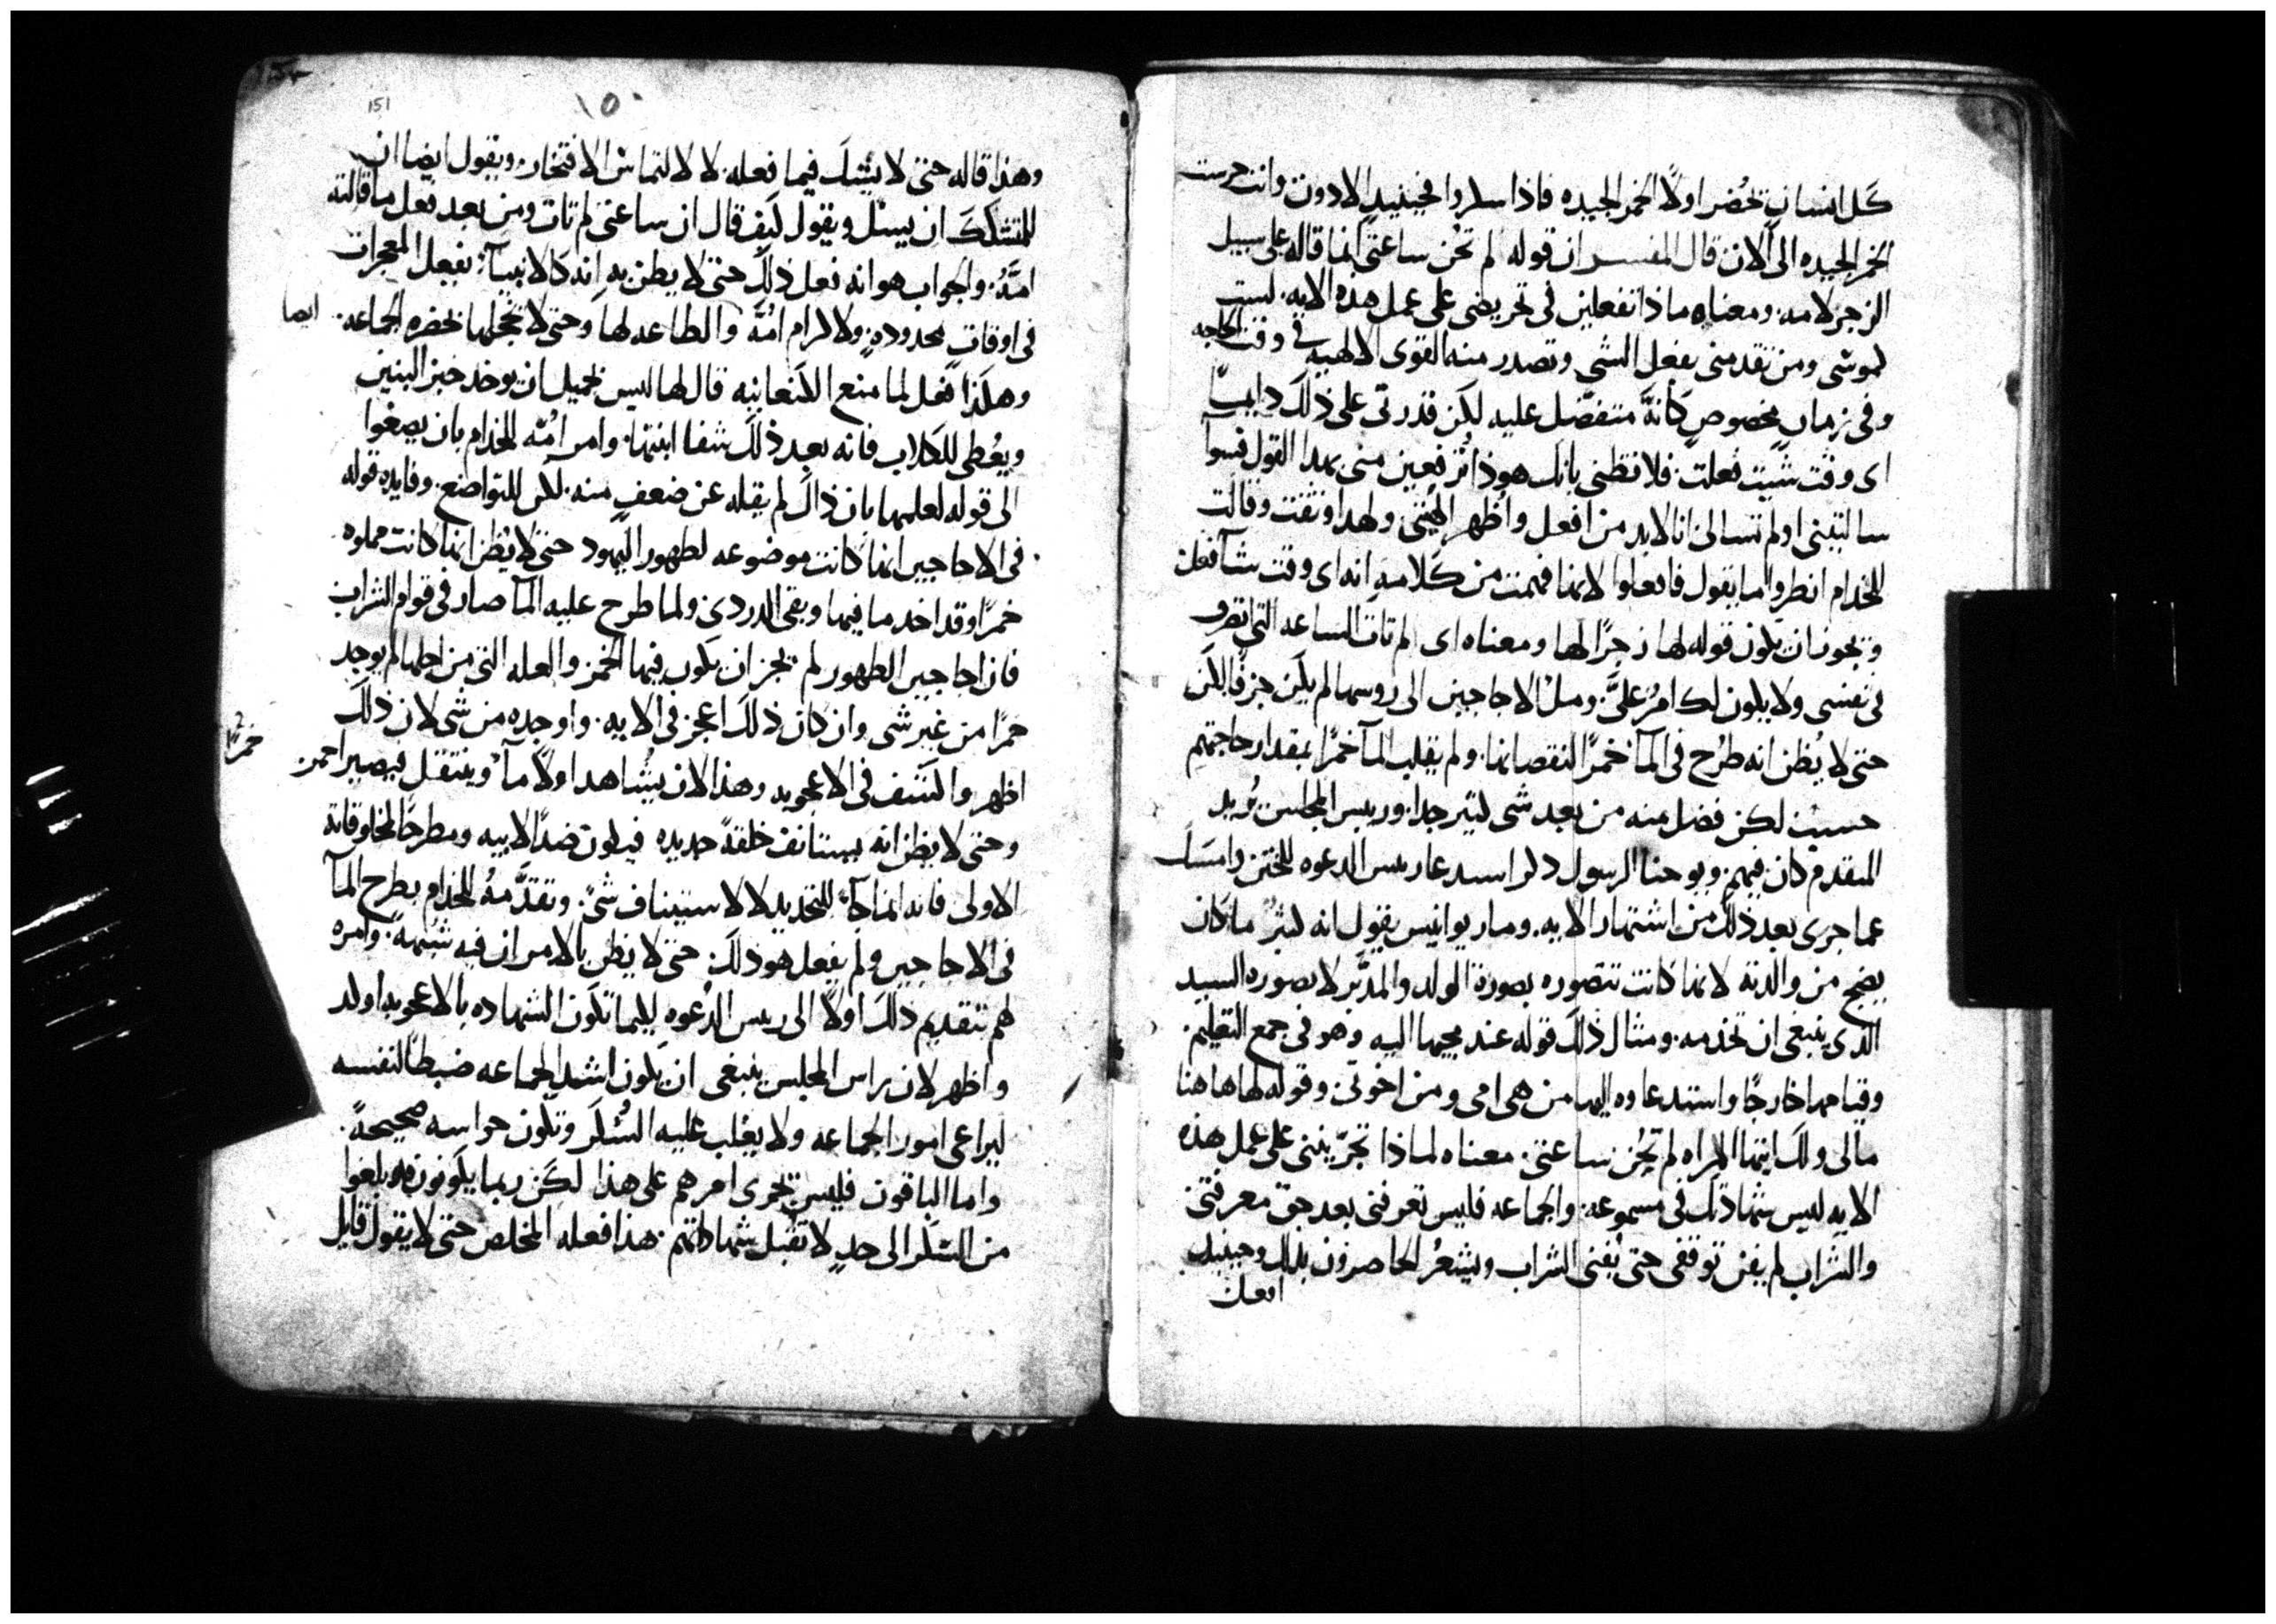 كل انسان يحُضر اولاً الخمر الجيده فاذا سكروا فحينيدٍ الادون وانت حرست
الخمر الجيده الى الان قال المفسر ان قوله لم تحُن ساعتي انما قاله على سبيل
الزجر لامه. ومعناه ماذا تفعلين في تحريضي على عمل هذه الايه. لست
كموسى ومن تقدمني بفعل الشي وتصدر منه القوى الالهيه في وقت الحاجه
وفي زمانٍ مخصوصٍ كأنهَّ متفضّل عليه لكن قدرتي على ذلك دايماً
اى وقت شيت فعلت. فلا تظني بانك هوذا تُرفعين مني بهدا القول فسوا
سالتيني اولم تسالى انا لابد من افعل واُظهر الهيتي ولهدا وثقت وقالت
للخدام انظروا ما يقول فافعلوا لانها فهمت من كلامه انه اى وقت شآ فعل
ويجوز ان يكون قوله لها زجرًا لها ومعناه اى لم تات الساعه التي تعرف
في نفسى ولا يكون لك امرُ علىَّ. ومل الاجاجين الى روسها لم يكن جزفًا لكن
حتى لا يُظن انه طُرح في المآ خمرًا لنقصانها. ولم يقلب المآ خمرًا بمقدار حاجتهم
حسبُ لكن فضل منه من بعد شى كثير جدا. وريس المجلس يُريد
المقدم كان فيهم. ويوحنا الرسول ذكر استدعا ريس الدعوه للختن وامسك
عما جرى بعد ذلك من اشتهار الايه. ومار يوانيس يقول انه كثيرُ ما كان
يضج من والدته لانها كانت تتصوره بصورة الولد والمدبَّر لا بصوره السيد
الذى ينبغى ان تخدمه. ومثال ذلك قوله عند مجيها اليه وهو في جمع التعليم.
وقيامها خارجًا واستدعاوه اليها من هى امى ومن اخوتي. وقوله لها هاهنا
مالى ولك ايتها المراه لم تحُن ساعتي. معناه لماذا تجرّبينني على عمل هذه
الايه ليس شهادتك في مسموعه. والجماعه فليس تعرفني بعد حق معرفتي
والشراب لم يفن توقفى حتى يُفنى الشراب ويشعرُ الحاضرون بذلك وحينيدٍ
افعل
151
١٥٠
وهذا قاله حتى لا يشك فيما فعله. لا لالتماس الافتخار. ويقول ايضا ان
للمتشكك ان يسل ويقول كيف قال ان ساعتي لم تات ومن بعد فعل ما قالته
امَّهُ. والجواب هو انه فعل ذلك حتى لا يظن به انه كالانبيآء يفعل المعجزات
في اوقات محدوده. ولاكرام امُّهَ والطاعه لها وحتى لا تخجلها بحضره الجماعه. ايضا
وهكذا فعل لما منع الكنعانيه قال لها ليس بجميل ان يوخد خبز البنين
ويعُطى للكلاب فانه بعد ذلك شفا ابنتها. وامرِ امُّه للخدام بان يصغوا
الى قوله لعلمها بان ذاك لم يقله عن ضعفٍ منه. لكن للتواضع. وفايده قوله
في الاجاجين انها كانت موضوعه لطهور اليهود حتى لا يُظن انها كانت مملوه
خمرًا وقد اخد ما فيها وبقى الدردى. ولما طرح عليه المآ صار في قوام الشراب
فان اجاجين الطهور لم يجز ان يكون فيها الخمر والعله التى من اجلها لم يوجد
خمرًا من غير شى وان كان ذلك اعجز في الايه. واوجده من شى لان ذلك
خمرًا
اظهر واكشف في الاعجوبه وهذا لان يُشاهد اولاً مآ وينتقل فيصير احمر
وحتى لا يظن انه يستانف خلقةً جديده فيكون ضدًا لابيه ومطرحًا لمخلوقاته
الاولى فانه انما جآء للتجديد لا لاستيناف شئ. وتقدَّمهُ للخدام بطرح المآ
في الاجاجين ولم يفعل هو ذلك. حتى لا يظن بالامر ان فيه شبهه. وامره
لهم بتقديم ذلك اولا الى ريس الدعوه ليكما تكون الشهاده بالاعجوبه اوكد
واظهر لان راس المجلس ينبغى ان يكون اشد الجماعه ضبطا لنفسه
ليراعى امور الجماعه ولا يغلب عليه السُكر وتكون حواسه صحيحهً.
واما الباقون فليس يجرى امرهم على هذا لكن ربما يكونون قد بلغوا
من السكر الى حدٍ لا تقبل شهاداتهم. هذا فعله المخلص حتى لا يقول قايل